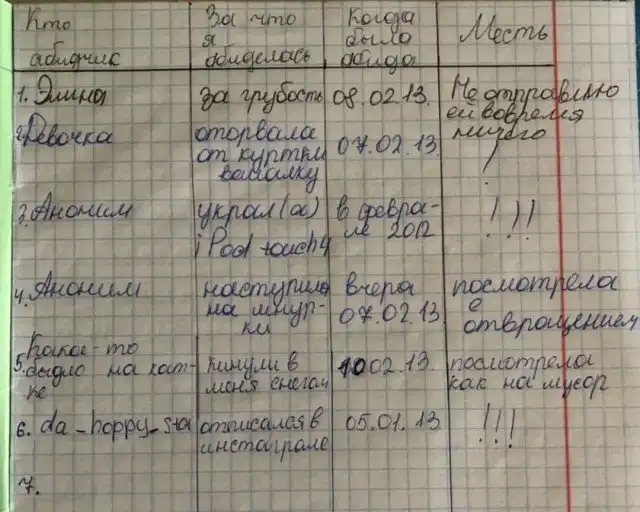 Кто абидчик
За что я абиделась
Когда была абида
Месть
1. Элина
за грубость
08.02.13.
Не отправлю ей вовремя ничего
2. Девочка
оторвала от куртки вешалку
07.02.13
!
3. Аноним
украл(а) iPod touch 4
в феврале 2012
!!!
4. Аноним
наступила на шнурки
вчера 07.02.13
посмотрела с отвращением
5. Какое-то быдло на катке
кинули в меня снегом
10.02.13
посмотрела как на мусор
6. da_happy_sta
отписался в инстаграме
05.01.13
!!!
7.